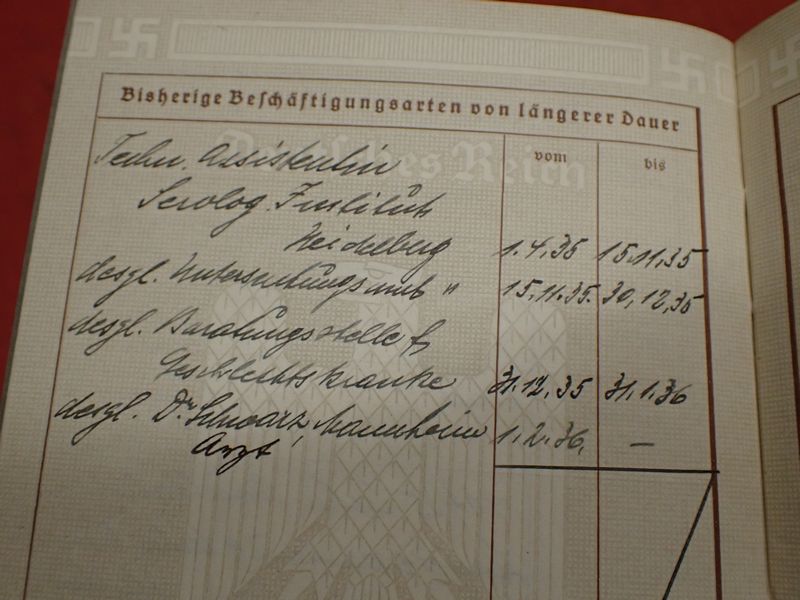 Bisherige Beschäftigungsarten von längerer Dauer
vom bis
Techn. Assistentin
Serolog. Institut
Heidelberg 1.4.35 15.11.35
desgl. Untersuchungsamt " 15.11.35. 30.12.35
desgl. Beratungsstelle f.
Geschlechtskranke 31.12.35 31.1.36
desgl. Dr Schwarz, Mannheim 1.2.36. —
Arzt